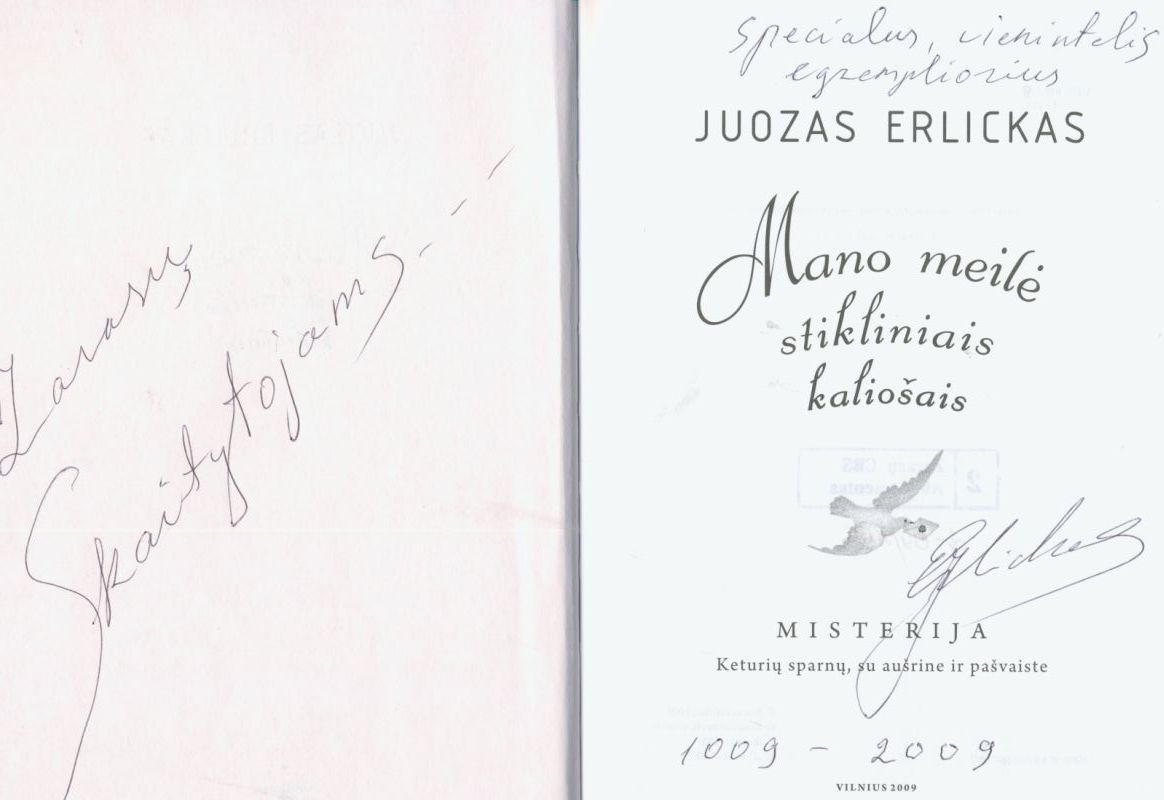 Zarasų
Skaitytojams - - -
Specialus, vienintelis
egzempliorius
JUOZAS ERLICKAS
Mano meilė
stikliniais
kaliošais
Erlickas
MISTERIJA
Keturių sparnų, su aušrine ir pašvaiste
1009 - 2009
VILNIUS 2009